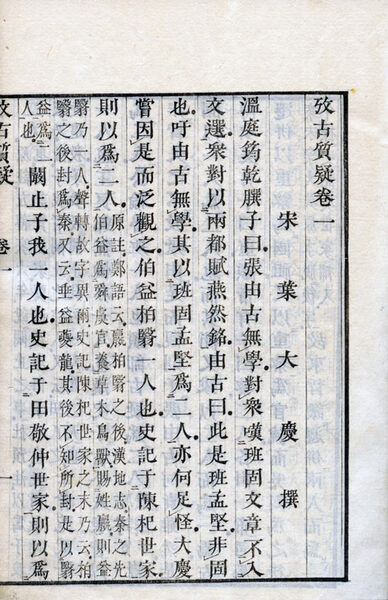 攷古質疑卷一
宋葉大慶撰
溫庭筠乾𦠆子曰張由古無學對衆嘆班固文章不入
文選衆對以兩都賦燕然銘由古曰此是班孟堅非固
也吁由古無學其以班固孟堅爲二人亦何足怪大慶
嘗因是而泛觀之伯益柏翳一人也史記于陳杞世家
則以爲二人
原註鄭語云嬴柏翳之後漢地志秦之先
伯益爲舜虞官養草木鳥獸賜姓嬴則益
翳乃一人聲轉故字異爾史記陳杞世家之末乃云柏
翳之後封爲秦又云垂益夔龍其後不知所封是以翳
益爲二
人也
闞止子我一人也史記于田敬仲世家則以爲
攷古質疑 卷一 一